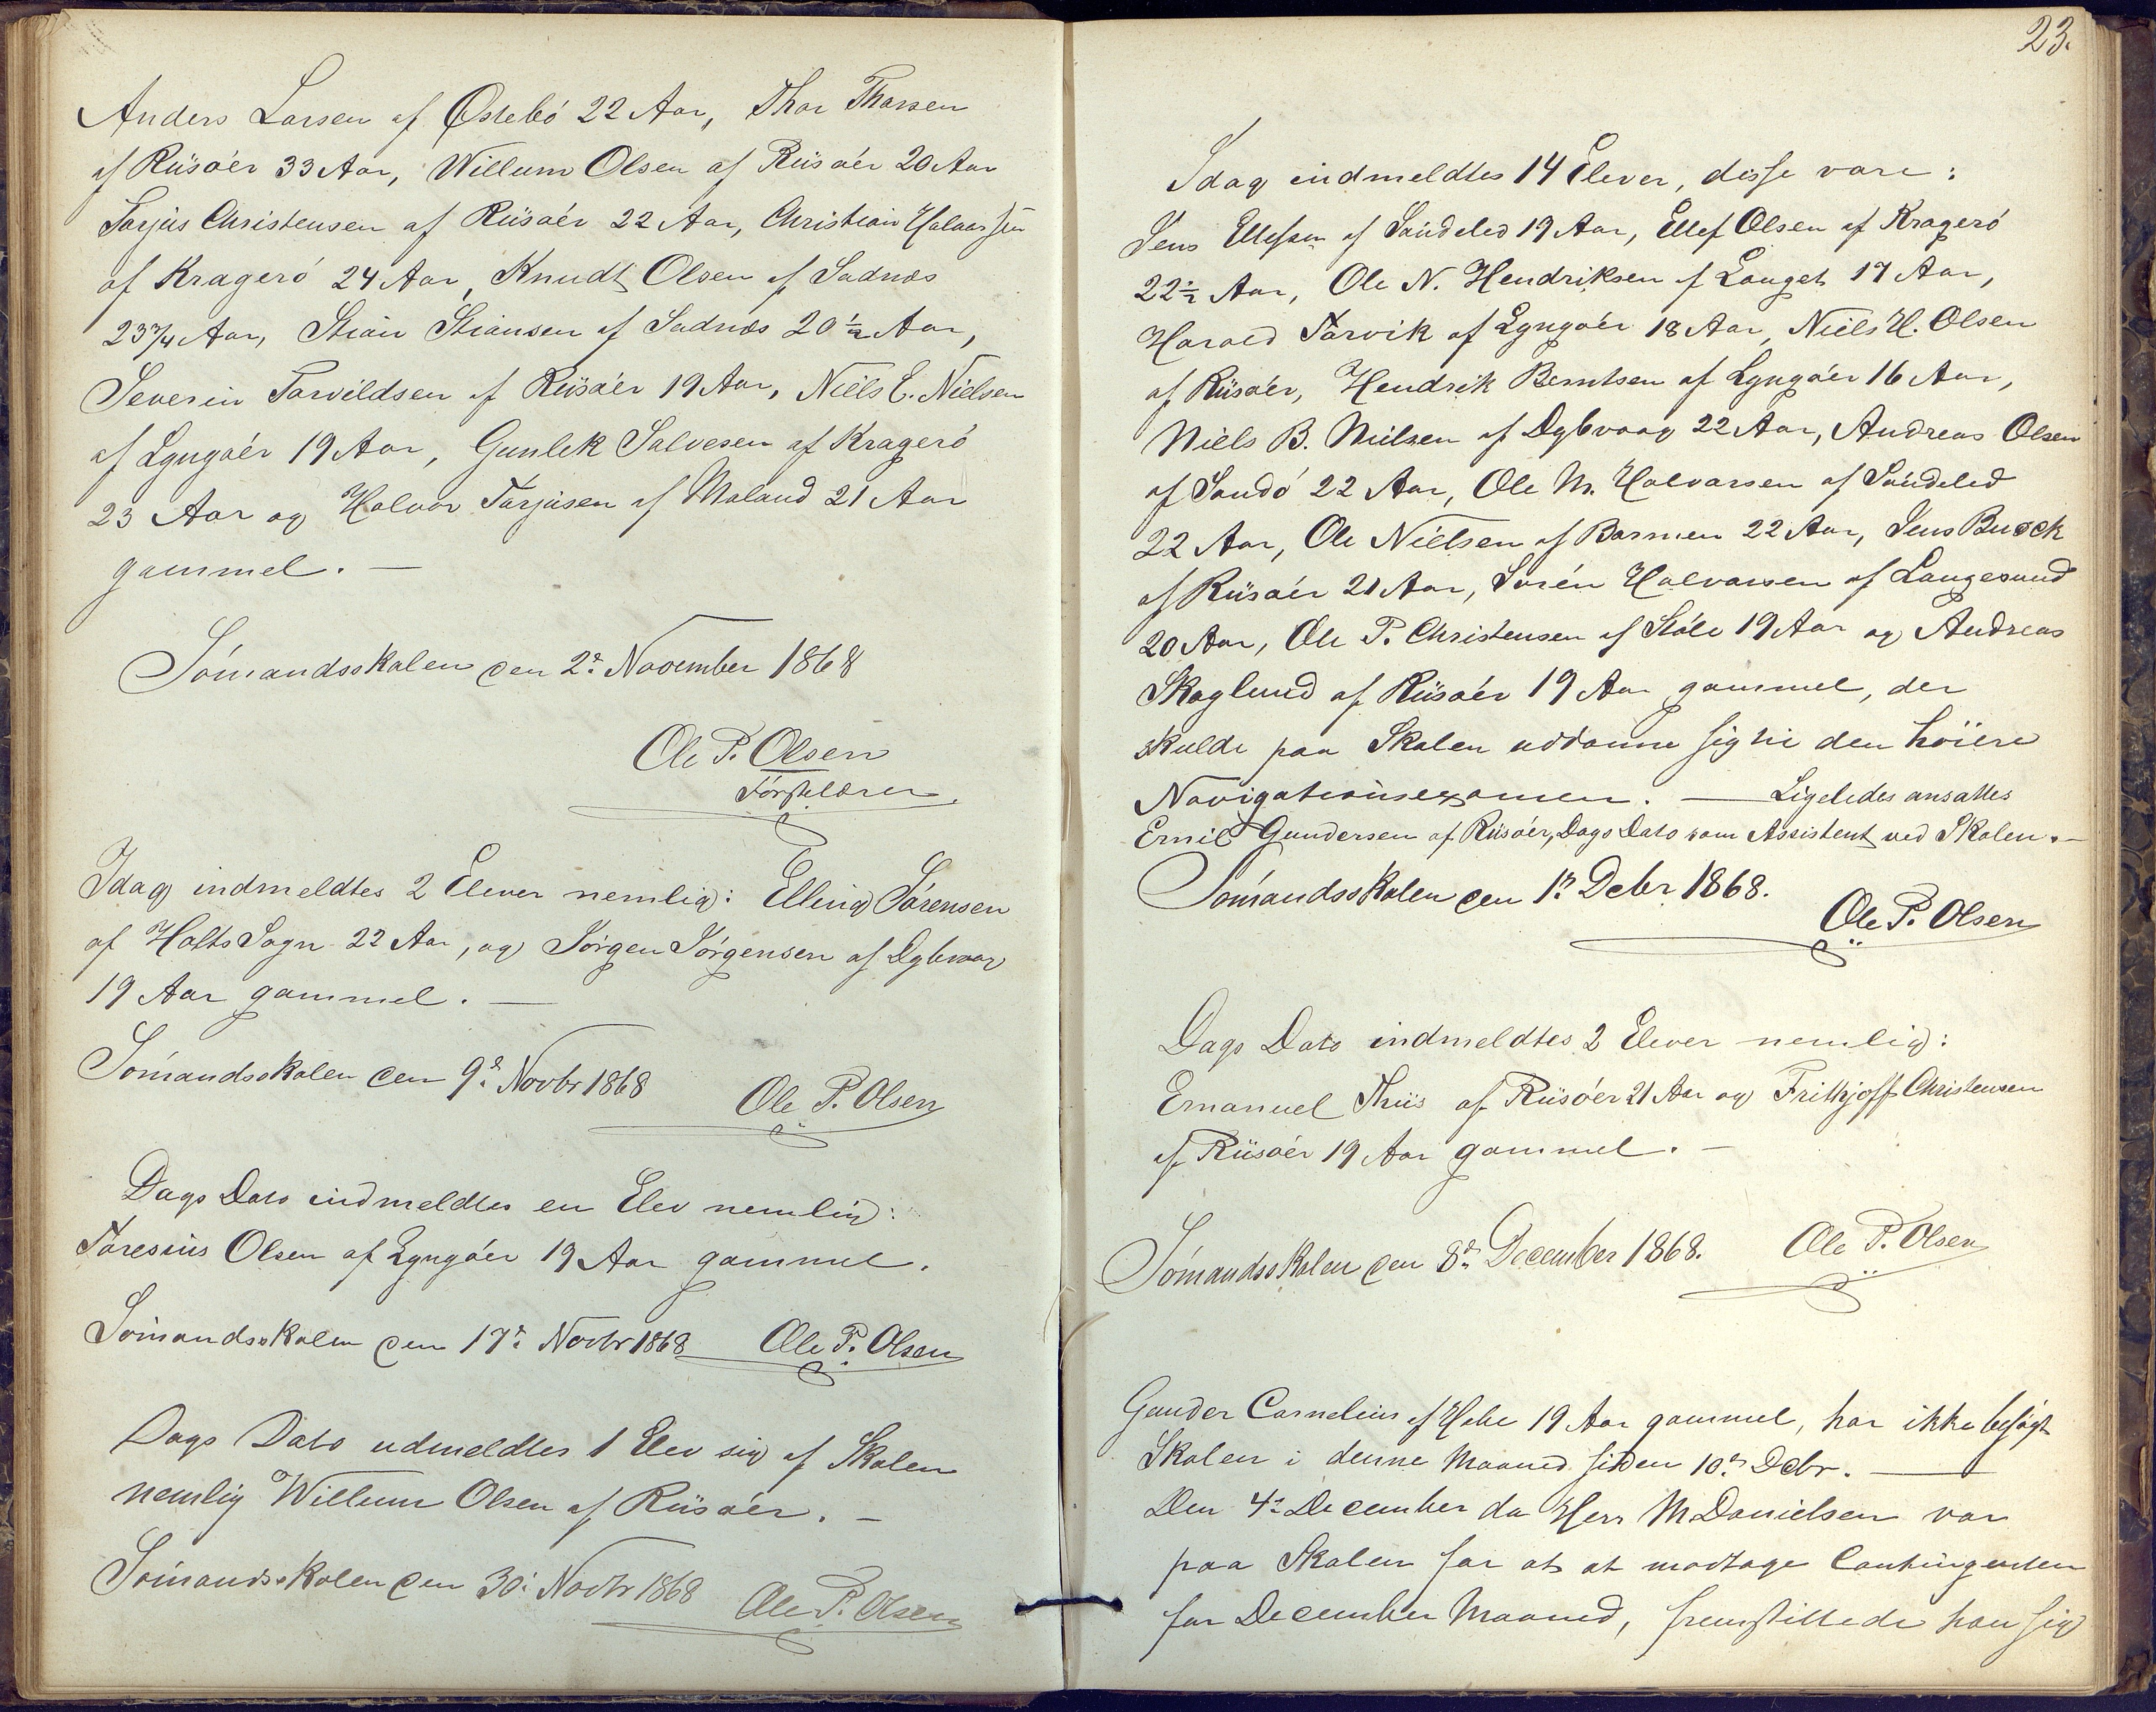 Anders Larsen af Østebó 22 Aar, Thor Thorsen
af Riisøer 33 Aar, Willum Olsen af Riisøer 20 Aar
Tarjus Christensen af Riisøer 22 Aar, Christian Halvorsen
af Kragerö 24 Aar, Knudt Olsen af Sadnæs
23¾ Aar, Stian Stiansen af Sadnæs 20½ Aar,
Severin Torvildsen af Riisøer 19 Aar, Niels E. Nielsen
af Lyngøer 19 Aar, Gunlek Salvesen af Kragerö
23 Aar og Halvor Tarjusen af Moland 21 Aar
gammel. —
Sómandsskolen den 2d November 1868
Ole P. Olsen
Förstelærer.
Idag indmeldtes 2 Elever nemlig: Elling Sörensen
af Holts Sogn 22 Aar, og Jörgen Jörgensen af Dybvaag
19 Aar gammel. —
Sómandsskolen den 9d Novbr 1868
Ole P. Olsen
Dags Dato indmeldtes en Elev nemlig:
Taresius Olsen af Lyngøer 19 Aar gammel.
Sómandsskolen den 17d Novbr 1868 Ole P. Olsen
Dags Dato udmeldtes 1 Elev sig af Skolen
nemlig Willum Olsen af Riisøer. —
Sómandsskolen den 30d Novbr 1868 Ole P. Olsen
23.
Idag indmeldtes 14 Elever, disse vare:
Jens Ellefsen af Söndeled 19 Aar, Ellef Olsen af Kragerö
22½ Aar, Ole N. Hendriksen af Langet 17 Aar,
Harald Tarvik af Lyngøer 18 Aar, Niels H. Olsen
af Riisøer, Hendrik Berntsen af Lyngøer 16 Aar,
Niels B. Nielsen af Dybvaag 22 Aar, Andreas Olsen
af Sandö 22 Aar, Ole M. Halvorsen af Söndeled
22 Aar, Ole Nielsen af Barmen 22 Aar, Jens Buock
af Riisøer 21 Aar, Sören Halvorsen af Langesund
20 Aar, Ole P. Christensen af Stöle 19 Aar og Andreas
Skoglund af Riisøer 19 Aar gammel, der
skulde paa Skolen uddanne sig til den höiere
Navigationsexamen. — Ligeledes ansattes
Emil Gundersen af Riisøer, Dags Dato som Assistent ved Skolen. —
Sómandsskolen den 1d Decbr 1868.
Ole P. Olsen
Dags Dato indmeldtes 2 Elever nemlig:
Emanuel Thiis af Riisøer 21 Aar og Frithjoff Christensen
af Riisøer 19 Aar gammel. —
Sómandsskolen den 8d December 1868. Ole P. Olsen
Gunder Cornelius af 19 Aar gammel, har ikke besögt
Skolen i denne Maaned siden 10d Decbr. —
Den 4d December da Herr M Danielsen var
paa Skolen for at at modtage Contingenten
for December Maaned, fremstillede han sig